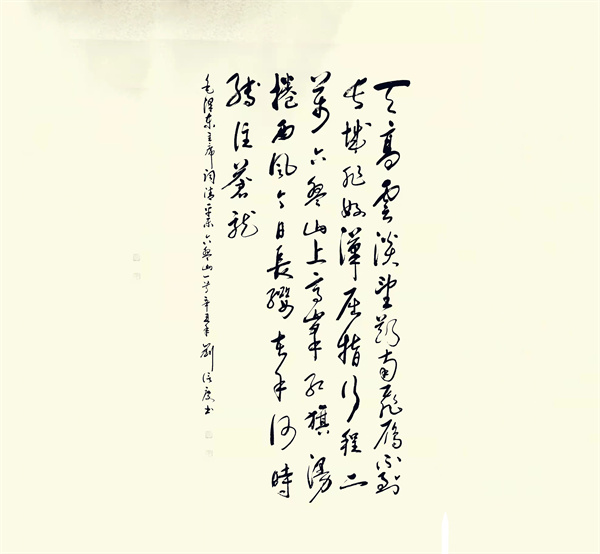 天高雲淡望斷南飛雁不到
长城非好漢屈指行程二
萬六盤山上高峯紅旗漫
捲西風今日長纓在手何時
縛住蒼龍
毛澤東主席詞清平樂六盤山一首辛丑年劉書